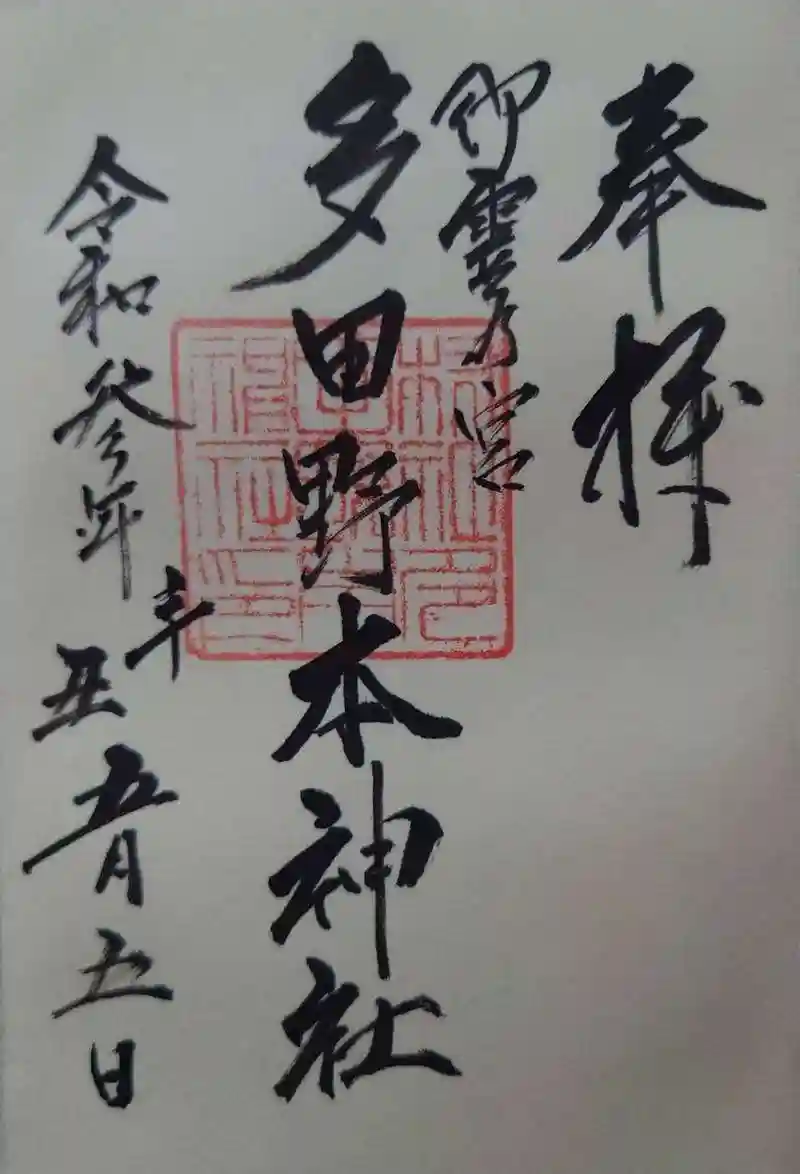 奉拝
御霊乃宮
多田野本神社
令和参年辛丑五月五日